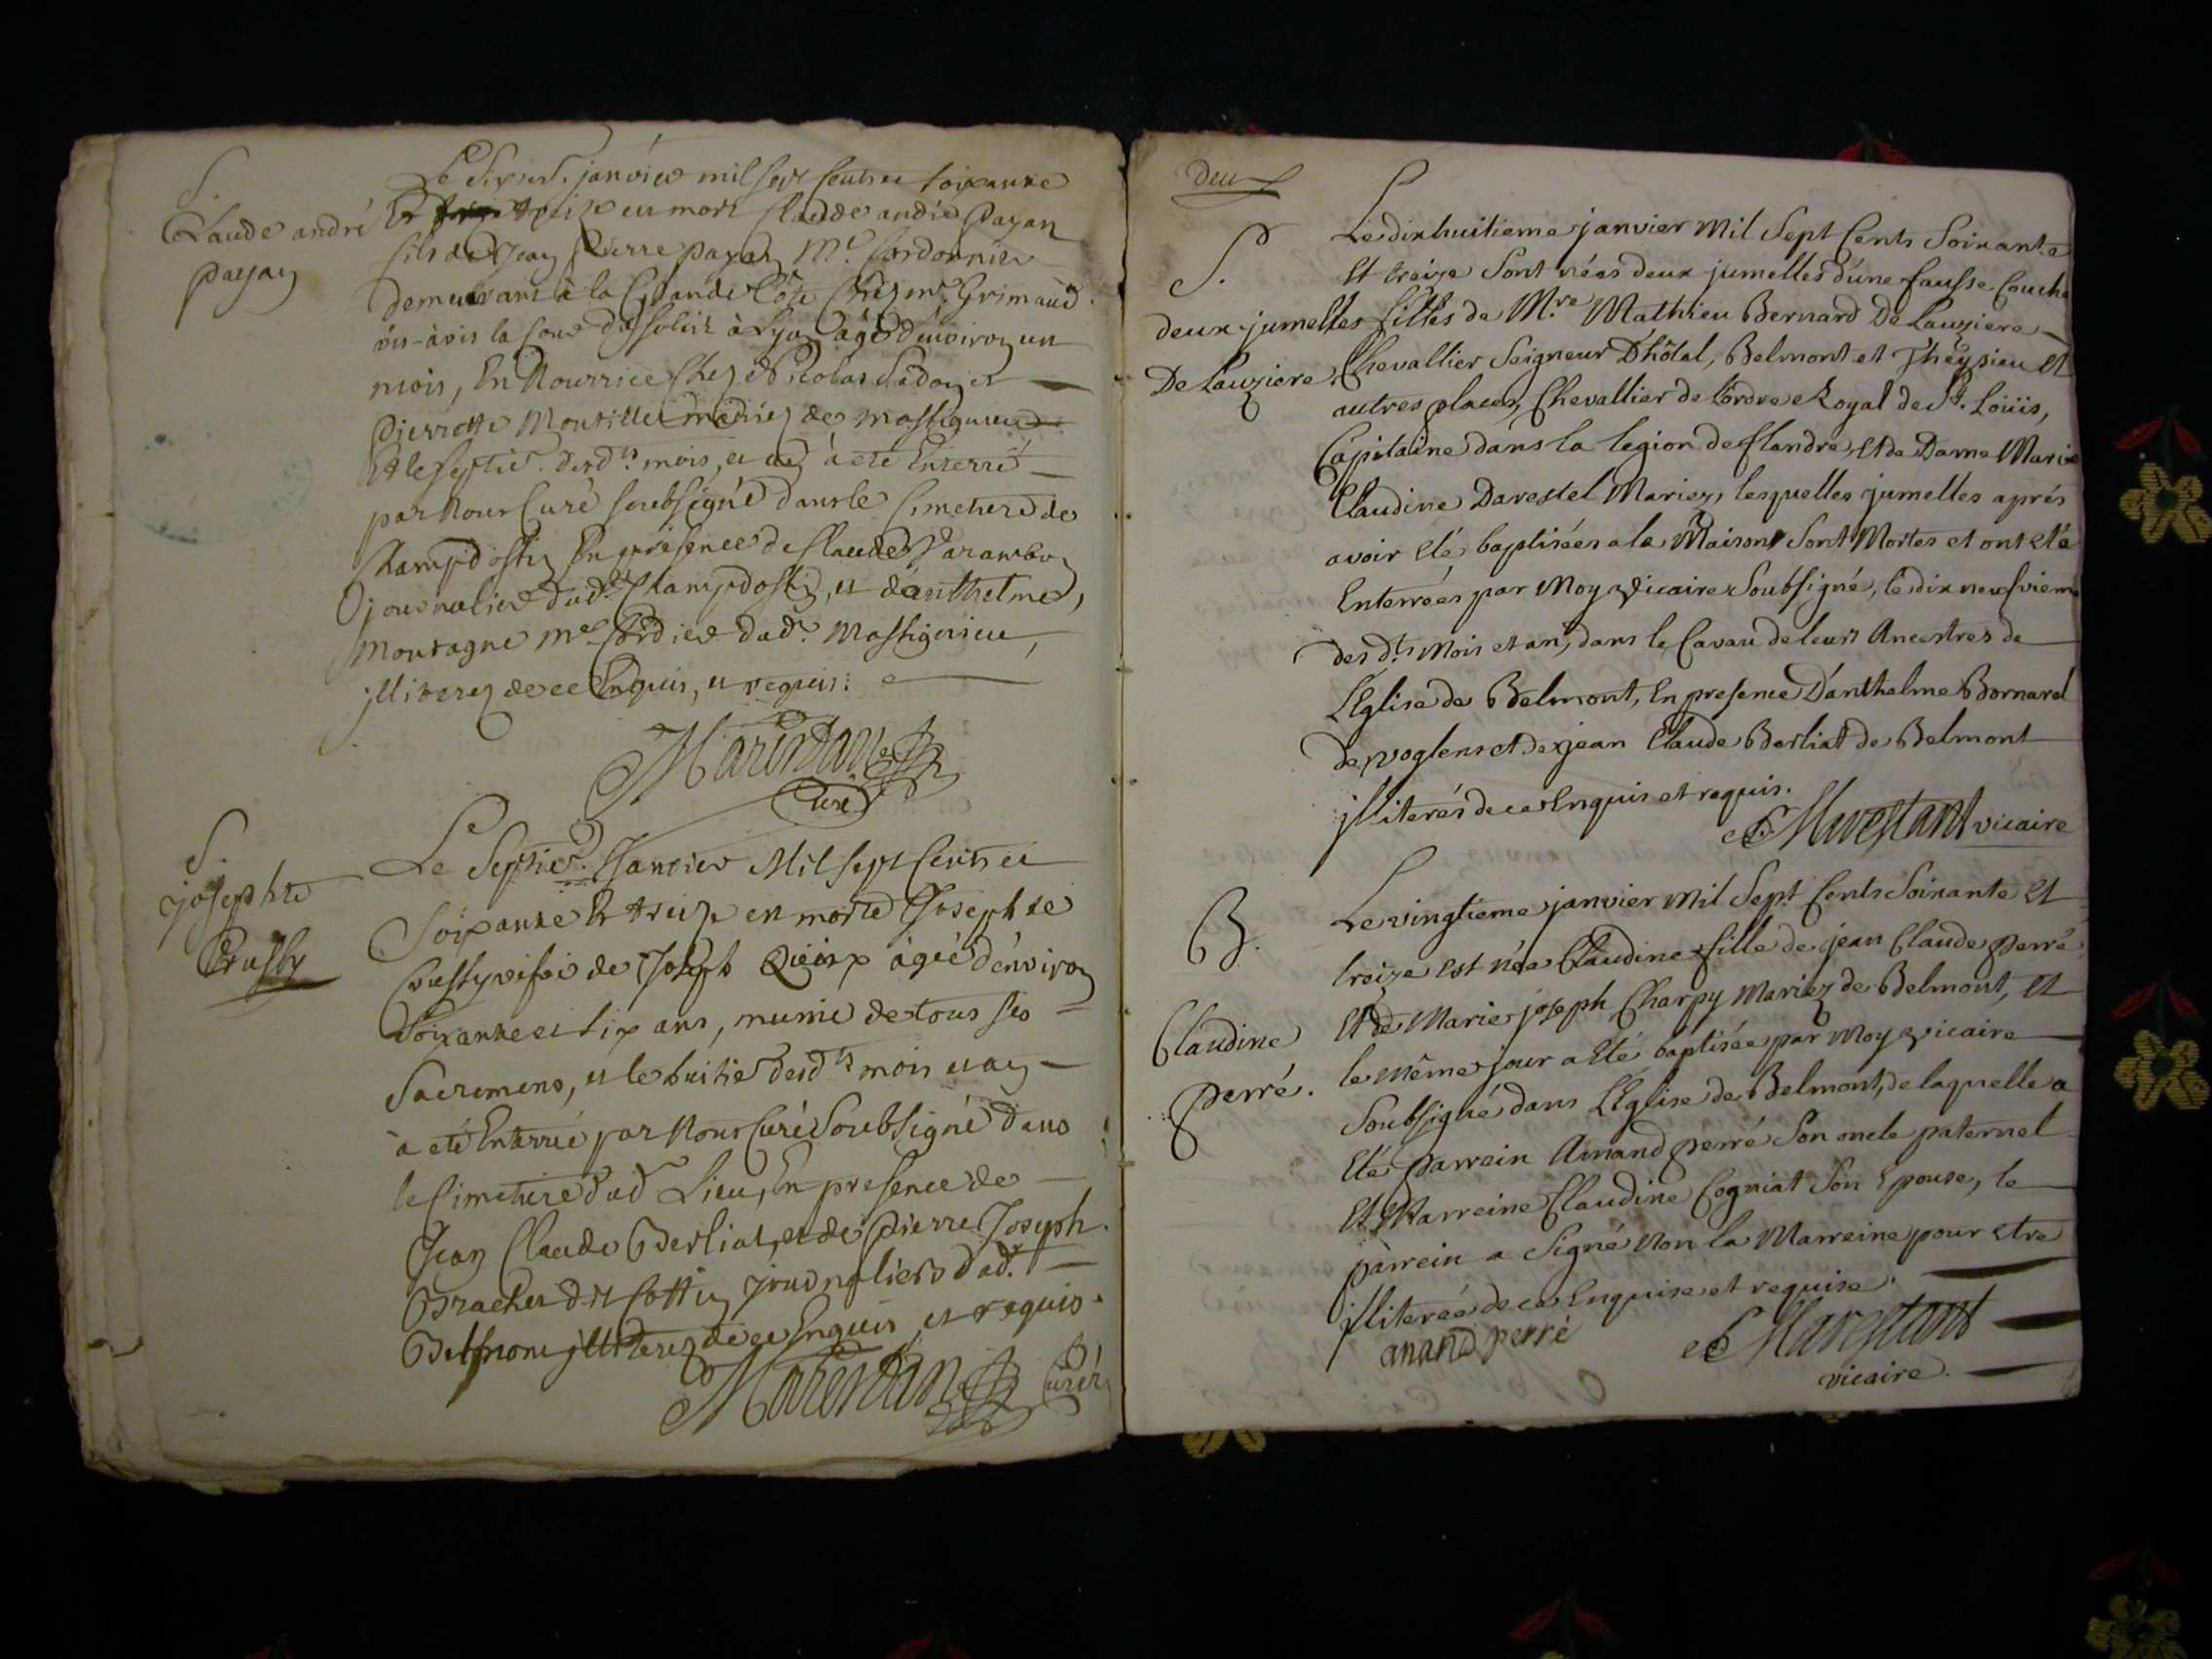 S.
Claude andré
payan
Le Sixie. janvier mil sept Cents et soixante
Et treize est mort Claude andré Payan
fils de Jean Pierre payan Me. Cordonnier
demeurant à la Grande Côte Chez mr. Grimaud
vis-à-vis la Cour du Soleil à Lyon âgé d'environ un
mois, En Nourrice Chez Nicolas et
Pierrette mariez de Massignieu
Et le septie. desdts mois, et an à eté Enterré
par Nous Curé soubsigné dans le Cimetiere de
Champdossin En présence de Claude Parambon
journalier dudt. Champdossin, et d'anthelme,
Montagne Me. Cordier dudt. Massignieu,
illiterez de ce Enquis, et requis.
Marestan
Curé
S.
josephte
Crussy
Le Septie. Janvier Mil sept Cents et
Soixante Et treize est morte Josephte
Crussy de Joseph âgée d'environ
Soixante et six ans, munie de tous ses
Sacremens, et le huitie desdts mois et an
à eté Enterrée par Nous Curé Soubsigné dans
le Cimetiere dudt Lieu, En presence de
Jean Claude Berliat, et de Pierre Joseph
Brachet dit Cottin journaliers dudt.
Belmont illiterez de ce Enquis et requis.
Marestan Curé
deux
S.
deux jumelles
De Lauziere
Le dix huitieme janvier Mil Sept Cents Soixante
Et treize Sont nées deux jumelles d'une fausse Couche
filles de Mre Mathieu Bernard De Lauziere
Chevallier Seigneur D'hôtel, Belmont et Theÿsieu Et
autres places, Chevallier de l'ordre Royal de St. Loüis,
Capitaine dans la legion de flandre, Et de Dame Marie
Claudine Darestel Mariez, lesquelles jumelles aprés
avoir Eté baptisées a la Maison Sont Mortes et ont Eté
Enterrées par Moy vicaire Soubsigné, le dix neufvieme
des dts Mois et an, dans le Caveau de leurs Ancestres de
L'Eglise de Belmont, En presence D'anthelme Bornard
de voglens et de jean Claude Berliat de Belmont
jlliterés de ce Enquis et requis.
Marestant vicaire
B.
Claudine
perré.
Le vingtieme janvier Mil Sept Cents Soixante Et
treize Est née Claudine fille de jean Claude perré
Et de Marie joseph Charpy Mariez de Belmont, Et
le même jour a Eté baptisée par Moy vicaire
Soubsigné dans L'Eglise de Belmont, de laquelle a
Eté parrein Amand perré Son oncle paternel
Et Marreine Claudine Cogniat Son Epouse, le
parrein a Signé Non la Marreine pour Etre
jlliterée de ce Enquise et requise.
anand perré
Marestant
vicaire.